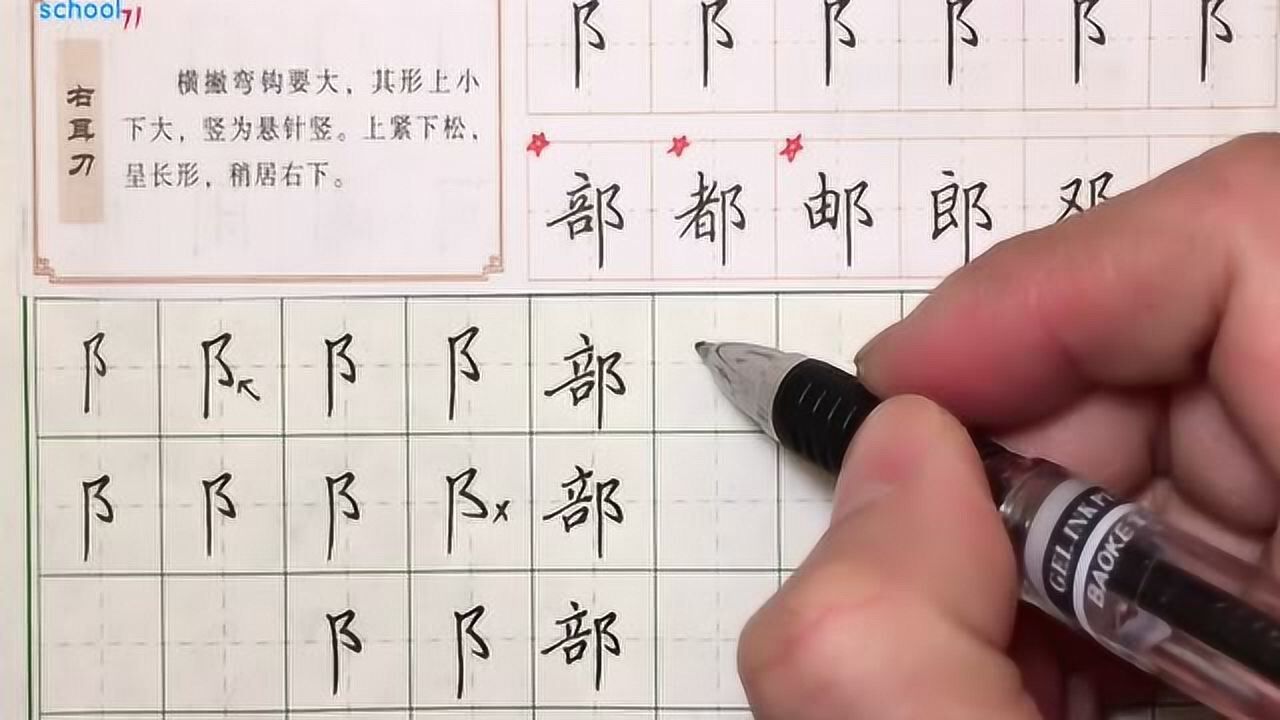 school
71
右耳刀
横撇弯钩要大，其形上小
下大，竖为悬针竖。上紧下松，
呈长形，稍居右下。
阝 阝 阝 阝 阝 阝
部 都 邮 郎 邓
阝 阝 阝 阝 部
阝 阝 阝 阝 x 部
阝 阝 部
GELINK
BAOKE